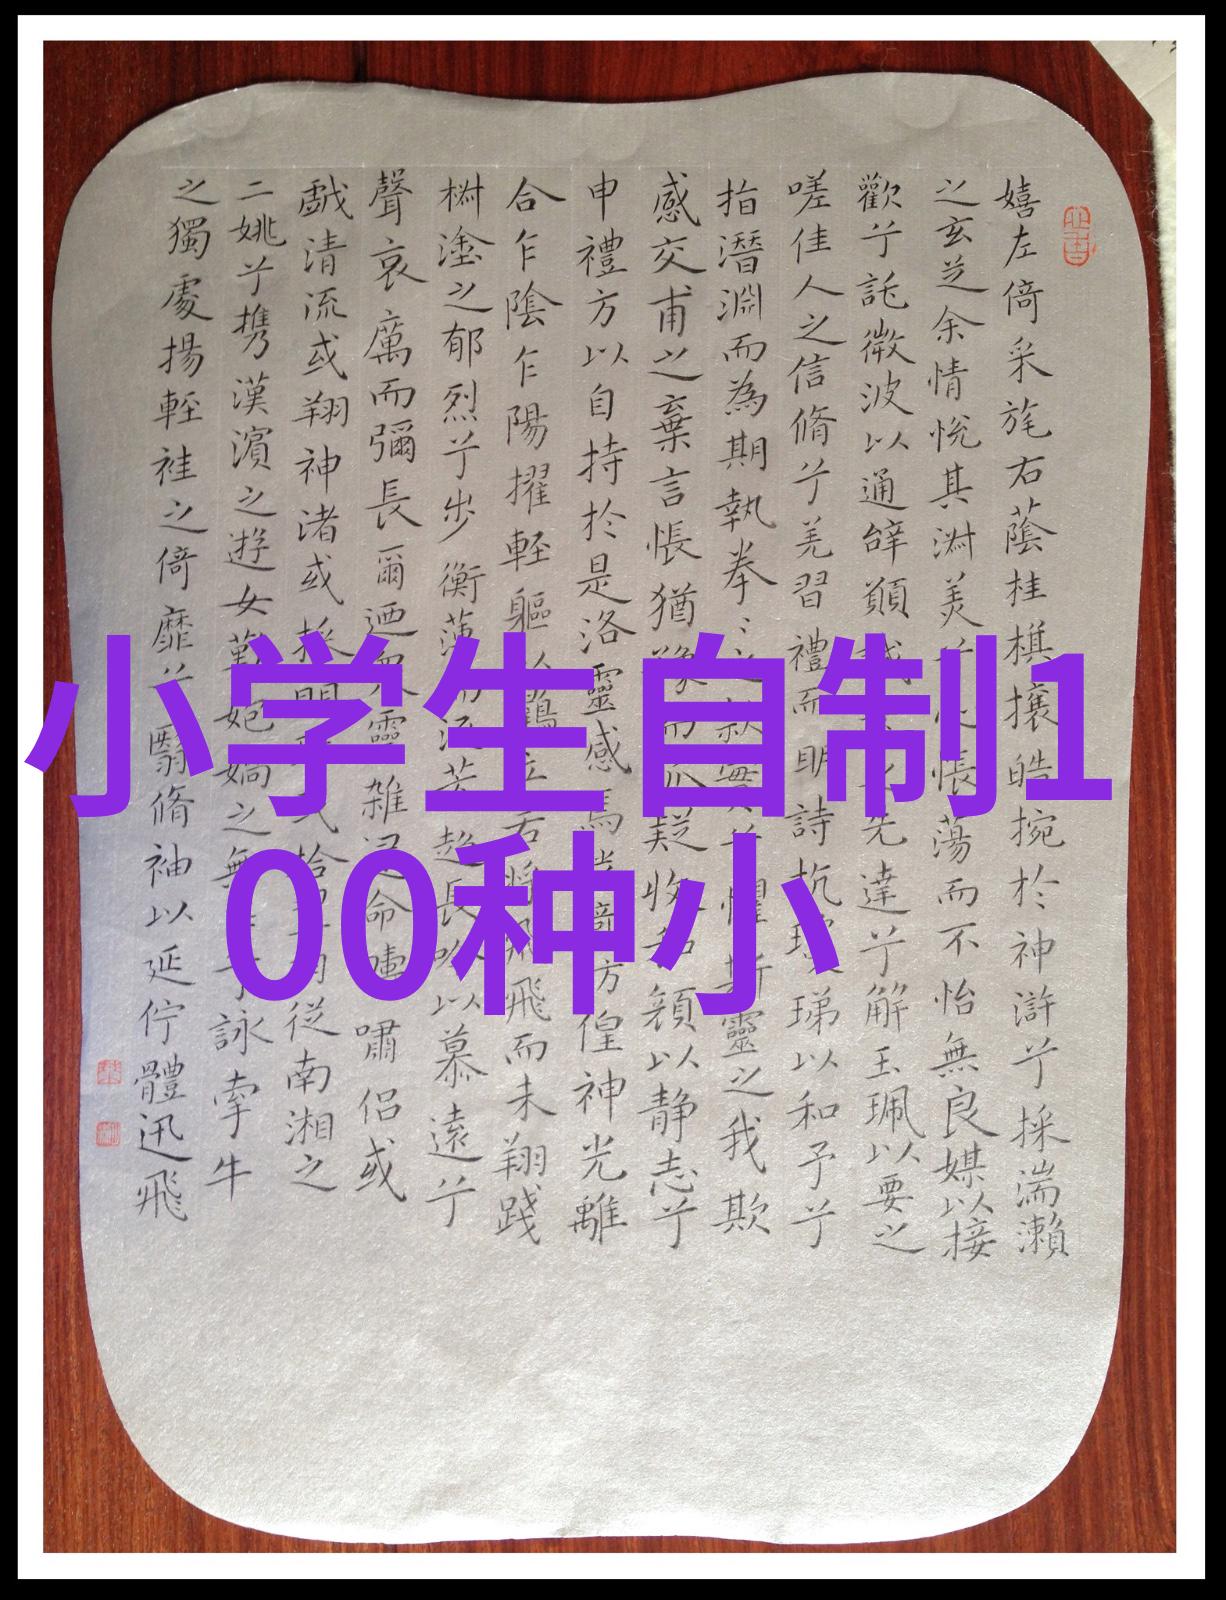 小学生自制1
00种小
嬉左倚采旄右蔭桂棋攘皓捥於神滸兮採湍瀨
之玄芝余情悅其淑美兮悵蕩而不怡無良媒以接
歡兮託微波以通辭願誠先達兮解玉珮以要之
嗟佳人之信脩兮羌習禮而明詩抗瓊珶以和予兮
指潛淵而為期執拳〻之款實兮懼斯靈之我欺
感交甫之棄言悵猶豫而狐疑收和顔以静志兮
申禮方以自持於是洛靈感焉徨神光離
合乍陰乍陽擢輕軀以鶴立若將飛而未翔踐
樹塗之郁烈兮步衡薄而流芳超長吟以慕遠兮
聲哀厲而彌長爾迺眾靈雜遝命儔嘯侶或
戲清流或翔神渚或採明或拾翠羽從南湘之
二姚兮携漢濱之遊女歎媧之無兮詠牽牛
之獨處揚輕袿之倚靡兮翳脩袖以延佇體迅飛